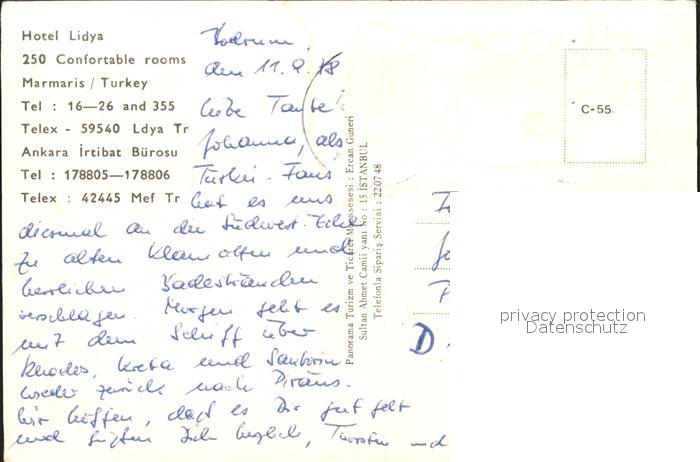 Hotel Lidya
250 Confortable rooms
Marmaris / Turkey
Tel : 16—26 and 355
Telex - 59540 Ldya Tr
Ankara İrtibat Bürosu
Tel : 178805—178806
Telex : 42445 Mef Tr
Bodrum,
den 11.9.78
Liebe Tante
Johanna, als
Türkei-Fans
hat es uns
diesmal an die Südwest-Ecke
zu alten Klamotten und
herrlichen Badestränden
verschlagen. Morgen geht es
mit dem Schiff über
Rhodos, Kreta und Santorin
wieder zurück nach Piräus.
Wir hoffen, daß es Dir gut geht
und grüßen Dich herzlich, Thorsten und
Panorama Turizm ve Ticaret Müessesesi : Ercan Güneri
Sultan Ahmet Camii yanı No : 15 İSTANBUL
Telefonla Sipariş Servisi : 220748
C-55
D
privacy protection
Datenschutz